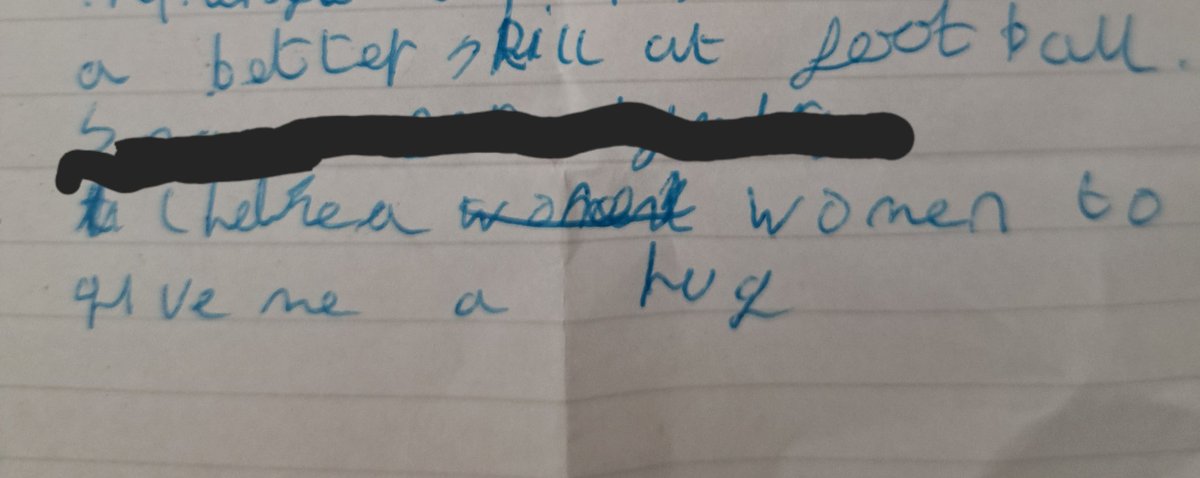 a better skill at football.
Chelsea women to
give me a hug